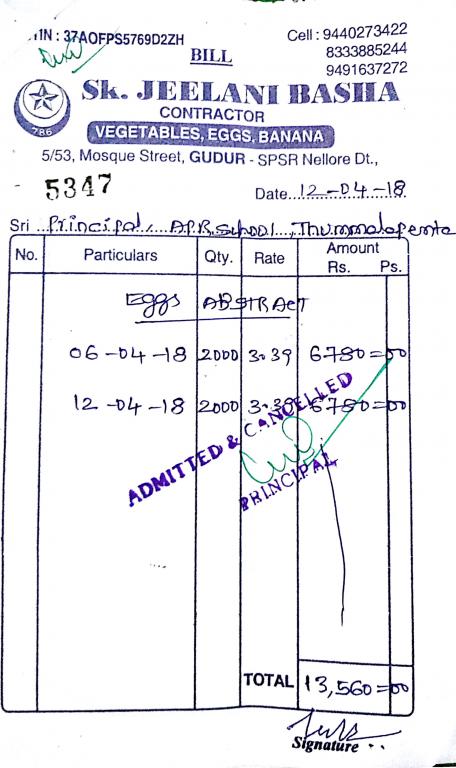 TIN : 37AOFPS5769D2ZH
Cell : 9440273422
8333885244
9491637272
BILL
786
Sk. JEELANI BASHA
CONTRACTOR
VEGETABLES, EGGS, BANANA
5/53, Mosque Street, GUDUR - SPSR Nellore Dt.,
5347
Date 12-04-18
Sri Principal, A.P.R. School, Thummalapenta
No. Particulars Qty. Rate Amount Rs. Ps.
Eggs ABSTRACT
06-04-18 2000 3.39 6780=00
12-04-18 2000 3.39 6780=00
ADMITTED & CANCELLED
PRINCIPAL
TOTAL 13,560=00
Signature